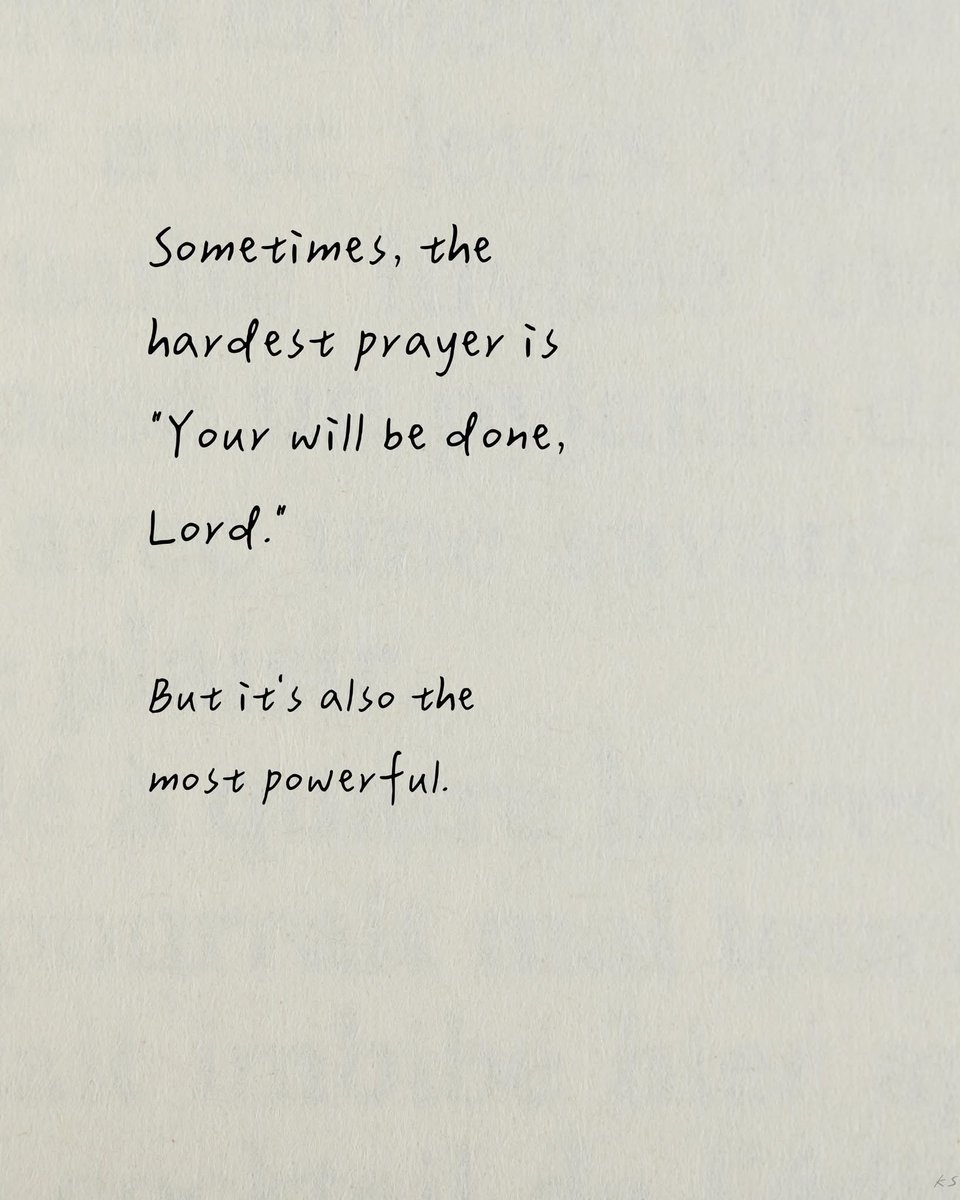 Sometimes, the
hardest prayer is
"Your will be done,
Lord."
But it's also the
most powerful.
KS